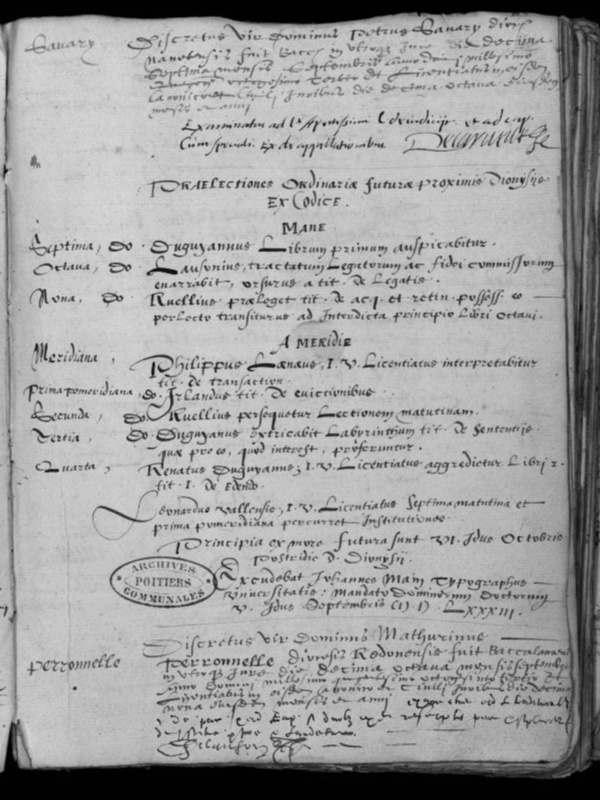 Savary
Discretus vir Dominus Petrus Savary dioces
nanetensis fuit Bacc in utroq Jure die decima
septima mensis Septembris anno domi millesimo
octogesimo tertio et Licentiatus in eisdem
canonico et Civili Juribus die decima octava eiusdem
mensis et anni
Examinatus ad l. et ad cap.
Cum
PRAELECTIONES Ordinariæ futuræ proximis Dionysiis
EX CODICE.
MANE
Septima, do. Duguyannus Librum primum auspicabitur.
Octava, do. Lausonius, tractatum Legatorum ac fidei commissorum
enarrabit, orsurus a tit. de Legatis.
Nona, do. Ruellius præleget tit. de acq. et retin. possess. eo
perlecto transiturus ad Interdicta principio Libri octavi.
A MERIDIE
Meridiana, Philippus Lænæus, I. V. Licentiatus interpretabitur
tit. de transaction.
Prima pomeridiana, do. Irlandus tit. de evictionibus.
Secunda, do. Ruellius persequetur Lectionem matutinam.
Tertia, do. Duguyanus extricabit Labyrinthum tit. de sententiis
quæ pro eo, quod interest, proferuntur.
Quarta, Renatus Duguyannus, I. V. Licentiatus aggredietur Libri 2.
tit. I. de Edendo.
Leonardus Vallensis, I. V. Licentiatus septima matutina et
prima pomeridiana percurret Institutiones.
Principia ex more futura sunt VI. Idus Octobris
Postridie D. Dionysii.
Excudebat Johannes Main Typographus
Universitatis: Mandato Dominorum Doctorum
V. Idus Septembris LXXXIII.
ARCHIVES
POITIERS
COMMUNALES
Perronnelle
Discretus vir Dominus Mathurinus
Perronnelle diocesis Redonensis fuit Baccalaureus
in utroq Jure die decima octava mensis septembris
anno Domini millesimo quingentesimo octogesimo tertio et
Licentiatus in eisdem canonico et Civili Juribus die decima
nona eiusdem mensis et anni